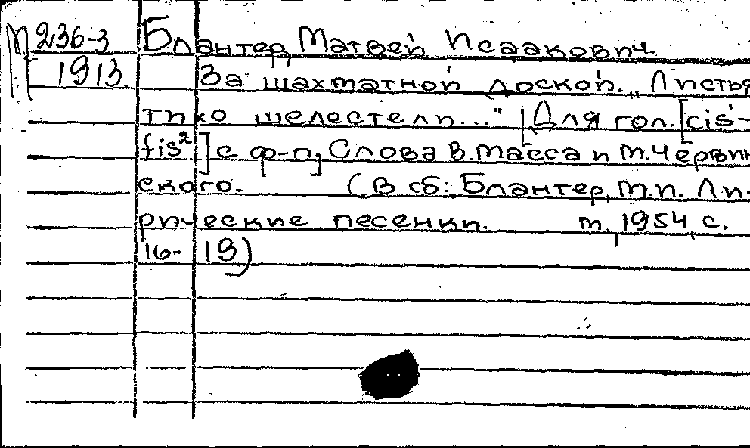 М 236-3 Блантер, Матвей Исаакович.
1913 За шахматной доской. „Листья
тихо шелестели..." [Для гол. [cis¹-
fis²] с ф-п.] Слова В. Масса и М. Червин-
ского. (В сб: Блантер, М.И. Ли-
рические песенки. М., 1954, с.
16-19)